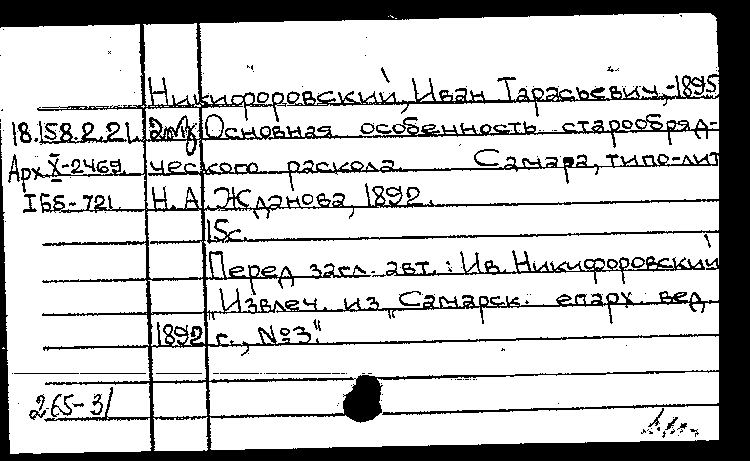 Никифоровский, Иван Тарасьевич, -1895
18.158.2.21. Основная особенность старообряд-
Арх. X-2469. ческого раскола. Самара, типо-лит
I Б5-721. Н. А. Жданова, 1892.
15с.
Перед загл. авт.: Ив. Никифоровский
"Извлеч. из "Самарск. епарх. вед.
1892 г., №3."
265-31